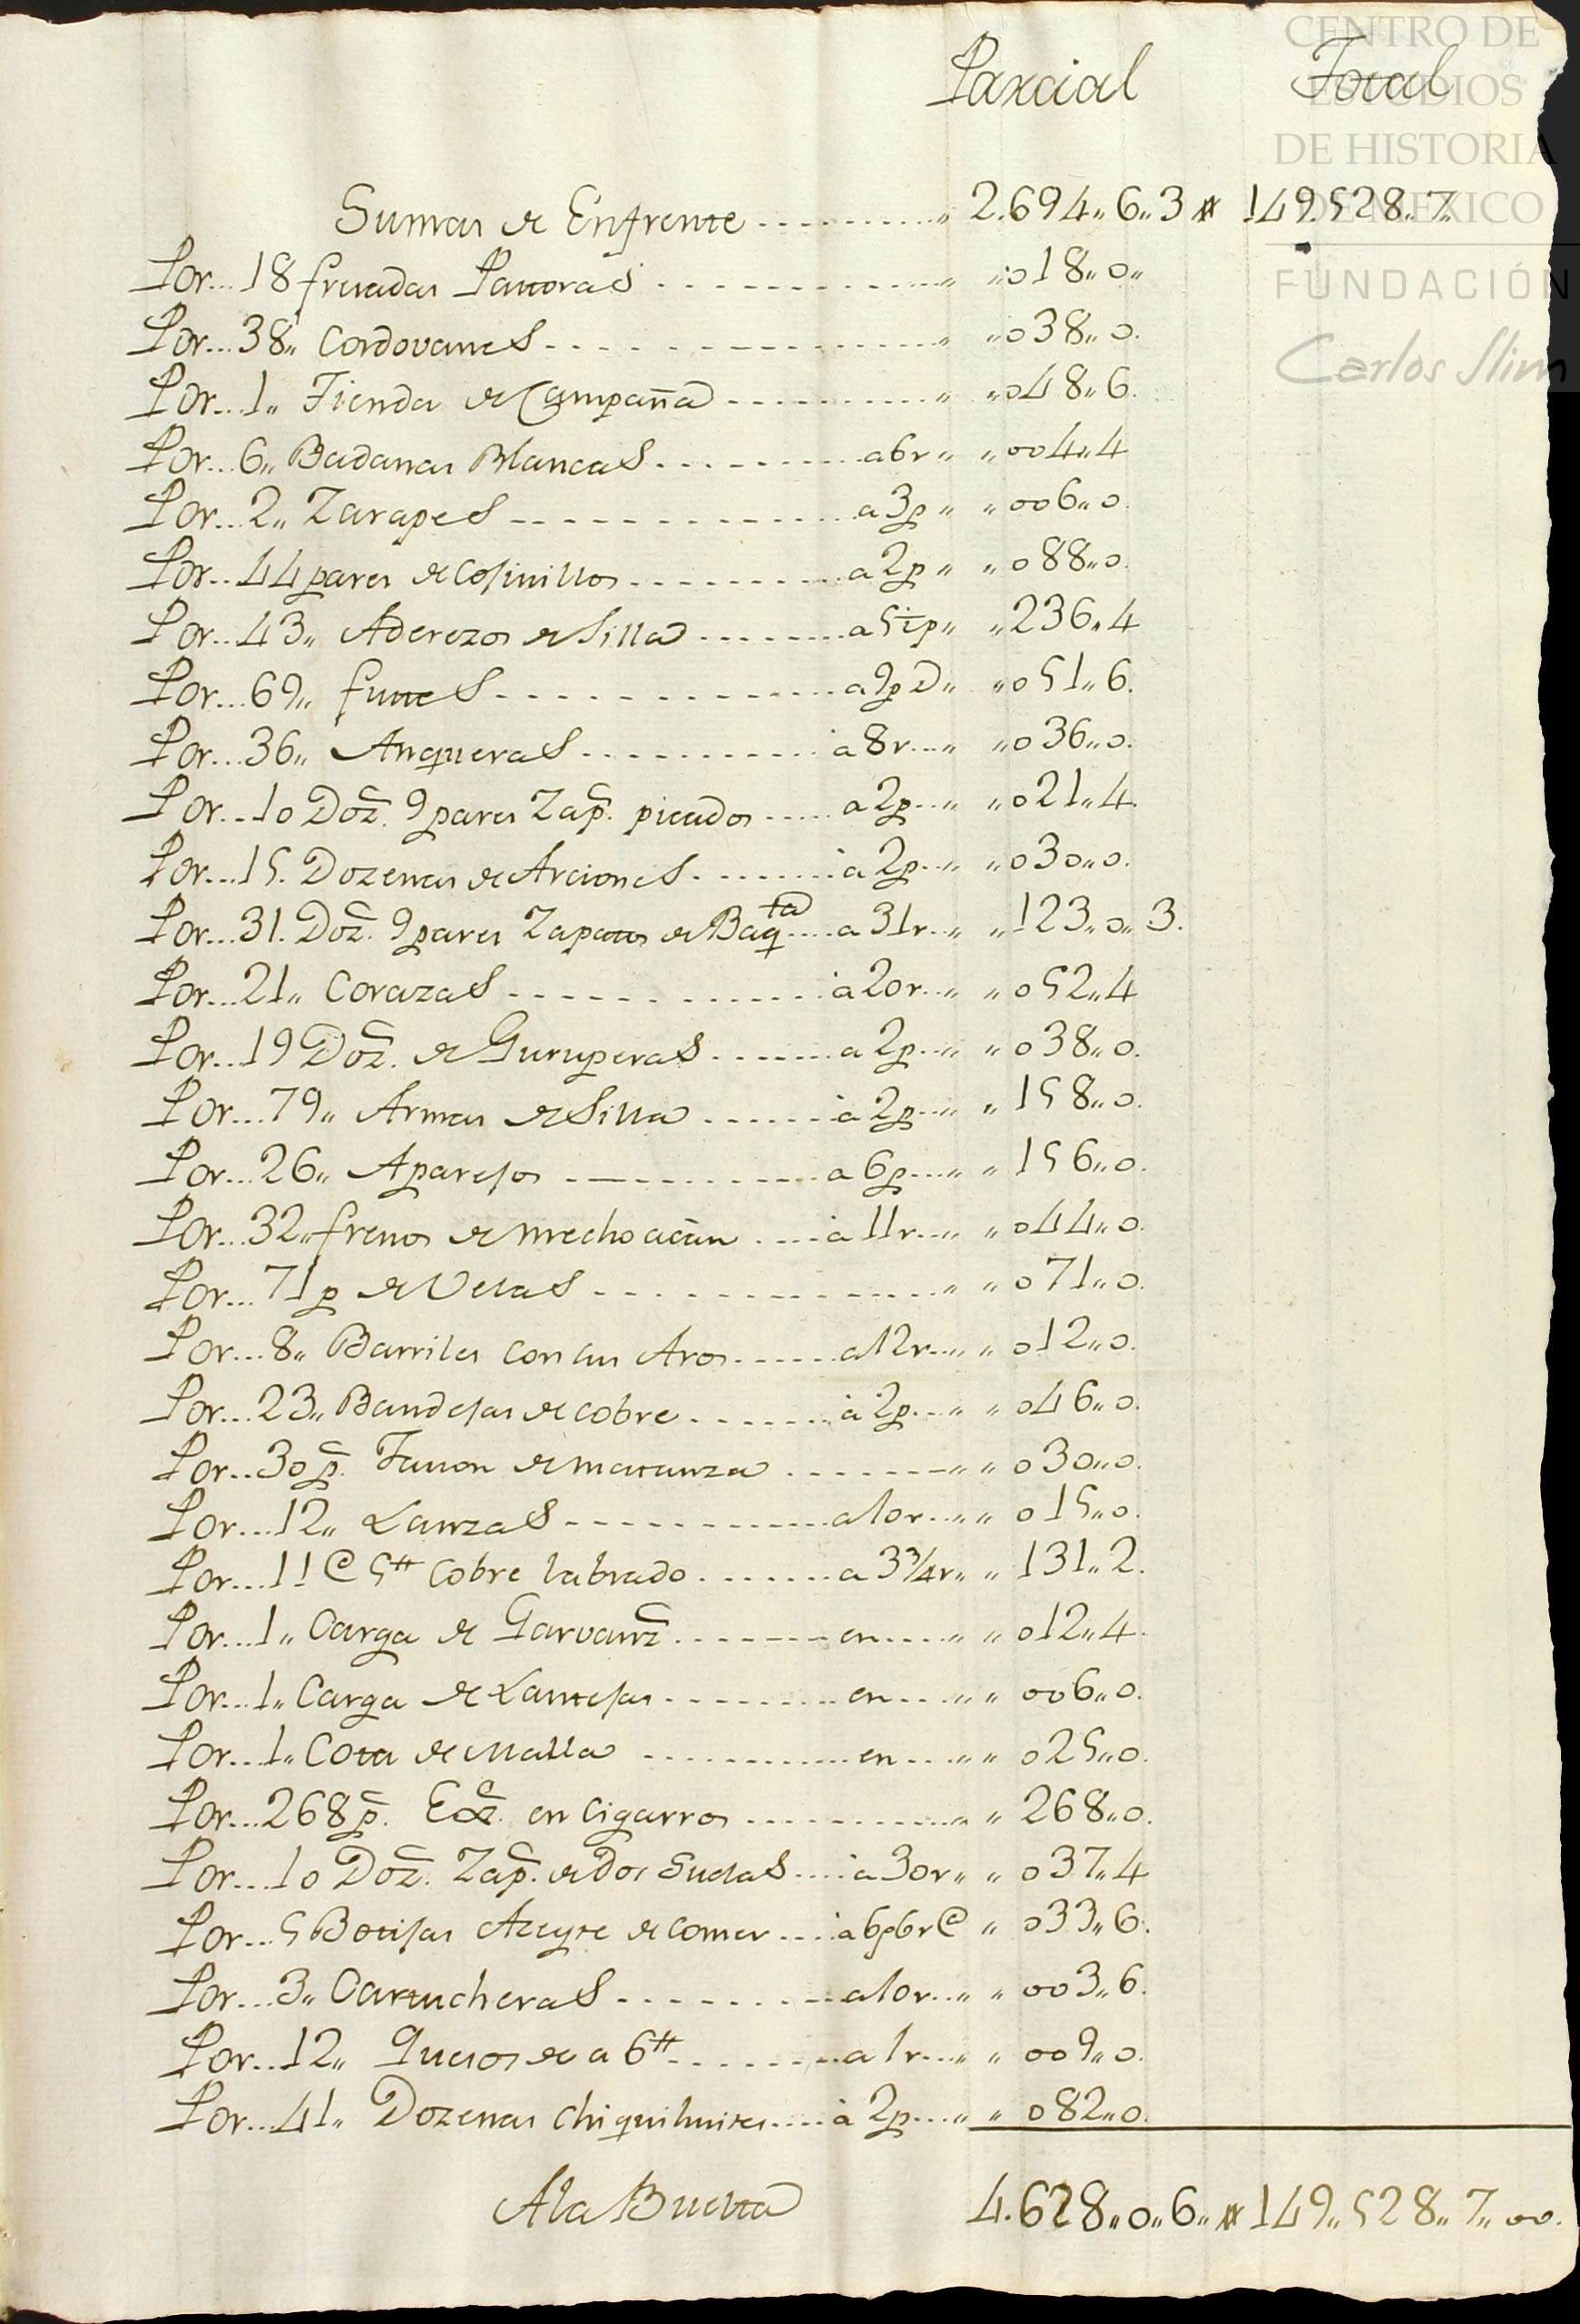 Parcial Total
Sumas de Enfrente ........... " 2.694,, 6,, 3 # 149.528,, 7,,
Por... 18 frezadas Pastoras ............ " ,,018,, 0,,
Por... 38,, Cordovanes ............ " ,,038,, 0.
Por... 1,, Tienda de Campaña ............ " ,,048,, 6.
Por... 6,, Badanas Blancas ......... a 6r ,, ,,004,, 4
Por... 2,, Zarapes ............ a 3p ,, ,,006,, 0.
Por... 44 pares de Cojinillos ......... a 2p ,, ,,088,, 0.
Por... 43,, Aderezos de Silla ....... a 5½p ,, ,,236,, 4
Por... 69,, fustes ............ a 9p D,, ,,051,, 6.
Por... 36,, Anqueras .......... a 8r... ,, ,,036,, 0.
Por... 10 Doz.s 9 pares Zap.s picados ..... a 2p... ,, ,,021,, 4.
Por... 15. Dozenas de Arciones ........ a 2p... ,, ,,030,, 0.
Por... 31. Doz.s 9 pares Zapatos de Baq.ta .... a 31r... ,, ,,123,, 0,, 3.
Por... 21,, Corazas ............ a 20r... ,, ,,052,, 4
Por... 19 Doz.s de Guruperas ....... a 2p... ,, ,,038,, 0.
Por... 79,, Armas de Silla ...... a 2p... ,, ,,158,, 0.
Por... 26,, Aparejos ........... a 6p... ,, ,,156,, 0.
Por... 32,, frenos de Mechoacàn .... a 11r... ,, ,,044,, 0.
Por... 71p de Velas ............ ,, ,,071,, 0.
Por... 8,, Barriles con sus Aros ...... a 12r... ,, ,,012,, 0.
Por... 23,, Bandejas de cobre ....... a 2p... ,, ,,046,, 0.
Por... 30 p.s Javon de matanza ........ ,, ,,030,, 0.
Por... 12,, Lanzas ............ a 10r... ,, ,,015,, 0.
Por... 11 @ 5tt Cobre labrado ....... a 3¾r,, ,, 131,, 2.
Por... 1,, Carga de Garvanz.s ........ en.... ,, ,,012,, 4.
Por... 1,, Carga de Lantejas ......... en.... ,, ,,006,, 0.
Por... 1,, Cota de Malla .......... en.... ,, ,,025,, 0.
Por... 268 p.s en Cigarros ........... ,, 268,, 0.
Por... 10 Doz.s Zap.s de Dos Suelas .... a 30r,, ,, 037,, 4
Por... 5 Botijas Azeyte de comer .... a 6p6r@ ,, 033,, 6.
Por... 3,, Cartucheras ......... a 10r... ,, ,,003,, 6.
Por... 12,, Quesos de a 6tt ........ a 1r... ,, ,,009,, 0.
Por... 41,, Dozenas chiquihuites .... a 2p... ,, ,,082,, 0.
A la Buelta 4.628,, 0,, 6,, # 149,, 528,, 7,, 00.
CENTRO DE
ESTUDIOS
DE HISTORIA
DE MEXICO
FUNDACIÓN
Carlos Slim